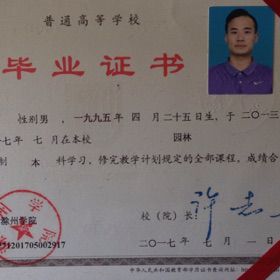 普通高等学校
毕业证书
性别男，一九九五年 四月二十五日生，于二〇一三
七年 七月在本校 园林
制 本 科学习，修完教学计划规定的全部课程，成绩合
滁州学院 校（院）长：
71201705002917 二〇一七年 七月 一日
中华人民共和国教育部学历证书查询网址：